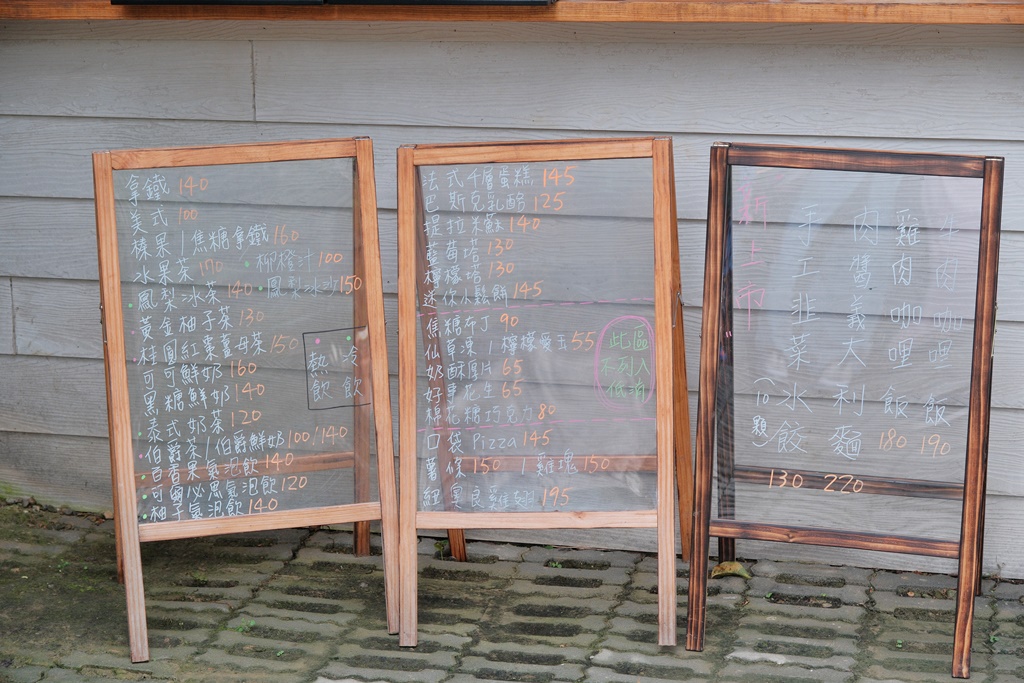 拿鐵 140
美式 100
榛果/焦糖拿鐵 160
水果茶 170 柳橙汁 100
鳳梨冰茶 140 鳳梨冰沙 150
黃金柚子茶 130
桂圓紅棗薑母茶 150
可可鮮奶 160
黑糖鮮奶 140
泰式奶茶 120
伯爵茶/伯爵鮮奶 100/140
百香果氣泡飲 140
可爾必思氣泡飲 120
柚子氣泡飲 140
熱飲
冷飲
法式千層蛋糕 145
巴斯克乳酪 125
提拉米蘇 140
藍莓塔 130
檸檬塔 130
迷你小鬆餅 145
焦糖布丁 90
仙草凍/檸檬愛玉 55
奶酥厚片 65
好事花生 65
棉花糖巧克力 80
此區
不列入
低消
口袋Pizza 145
薯條 150 / 雞塊 150
紐奧良雞翅 195
新上市
手工韭菜水餃 (10顆) 130
肉醬義大利麵 220
雞肉咖哩飯 180
牛肉咖哩飯 190